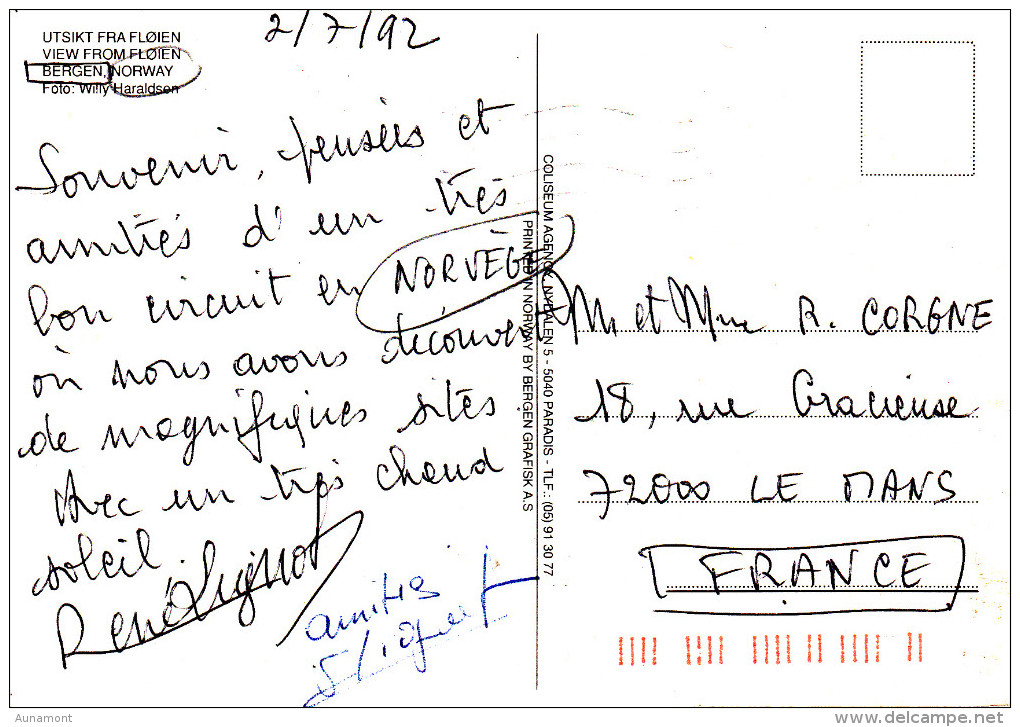 UTSIKT FRA FLØIEN
VIEW FROM FLØIEN
BERGEN, NORWAY
Foto: Willy Haraldsen
2/7/92
Souvenir, pensées et
amitiés d'un très
bon circuit en NORVÈGE
où nous avons découvert
de magnifiques sites
Avec un très chaud
soleil
René
amitiés
COLISEUM AGENCY, NYDALEN 5 - 5040 PARADIS - TLF.: (05) 91 30 77
PRINTED IN NORWAY BY BERGEN GRAFISK A.S
M et Mme R. CORGNE
18, rue Gracieuse
72000 LE MANS
FRANCE
Aunamont
www.delcampe.net